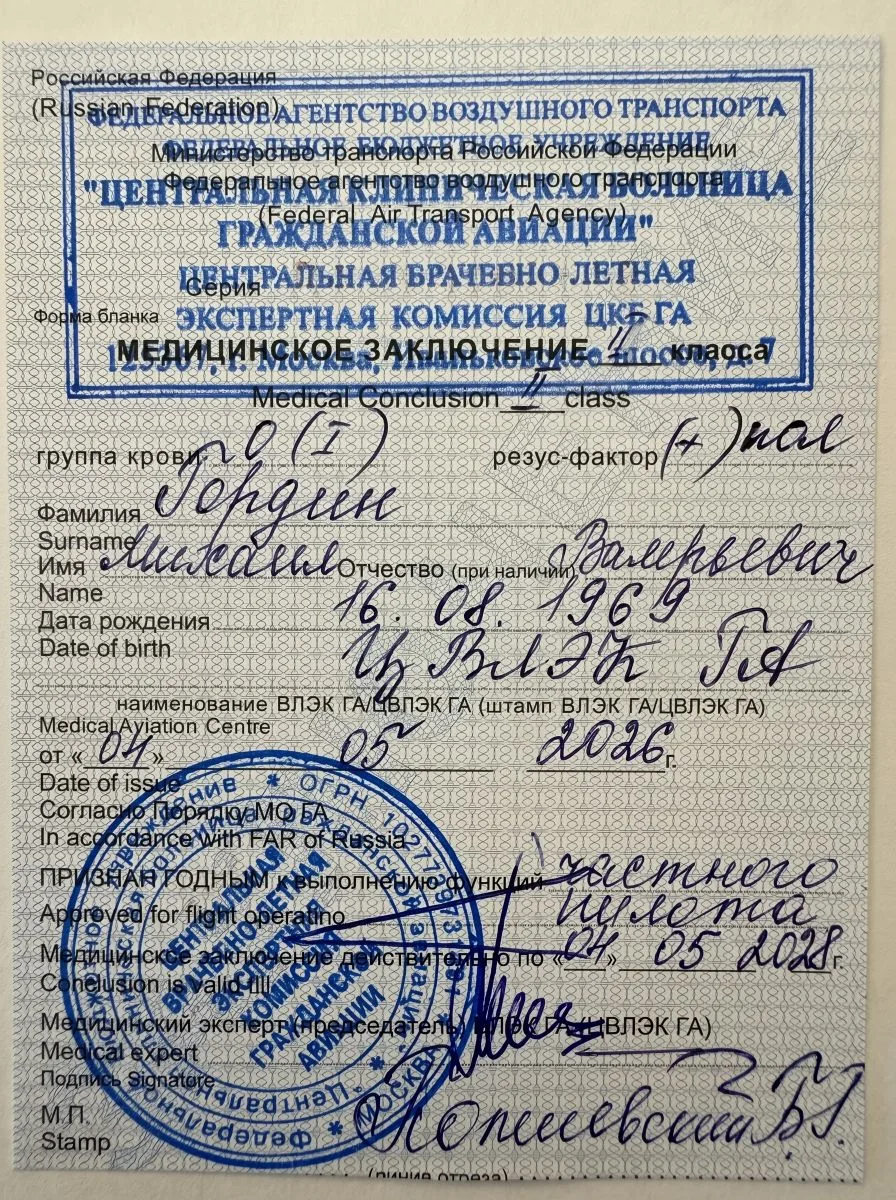 Российская Федерация
(Russian Federation)
ФЕДЕРАЛЬНОЕ АГЕНТСТВО ВОЗДУШНОГО ТРАНСПОРТА
ФЕДЕРАЛЬНОЕ БЮДЖЕТНОЕ УЧРЕЖДЕНИЕ
Министерство транспорта Российской Федерации
Федеральное агентство воздушного транспорта
"ЦЕНТРАЛЬНАЯ КЛИНИЧЕСКАЯ БОЛЬНИЦА
(Federal Air Transport Agency)
ГРАЖДАНСКОЙ АВИАЦИИ"
ЦЕНТРАЛЬНАЯ ВРАЧЕБНО-ЛЕТНАЯ
Серия
Форма бланка
ЭКСПЕРТНАЯ КОМИССИЯ ЦКБ ГА
МЕДИЦИНСКОЕ ЗАКЛЮЧЕНИЕ II класса
г. Москва, шоссе, д. 7
Medical Conclusion II class
группа крови O (I) резус-фактор (+) пол
Фамилия Гордин
Surname
Имя Михаил Отчество (при наличии) Валерьевич
Name
Дата рождения 16. 08. 1969
Date of birth
ЦВЛЭК ГА
наименование ВЛЭК ГА/ЦВЛЭК ГА (штамп ВЛЭК ГА/ЦВЛЭК ГА)
Medical Aviation Centre
от «04» 05 2026 г.
Date of issue
Согласно Порядку МО ГА
In accordance with FAR of Russia
ПРИЗНАН ГОДНЫМ к выполнению функций частного
Approved for flight operatino пилота
Медицинское заключение действительно по «04» 05 2028 г.
Conclusion is valid till
Медицинский эксперт (председатель ВЛЭК ГА/ЦВЛЭК ГА)
Medical expert
Подпись Signature
М.П.
Stamp
(линия отреза)
ЦЕНТРАЛЬНАЯ
ВРАЧЕБНО-ЛЕТНАЯ
ЭКСПЕРТНАЯ
КОМИССИЯ
ГРАЖДАНСКОЙ
АВИАЦИИ